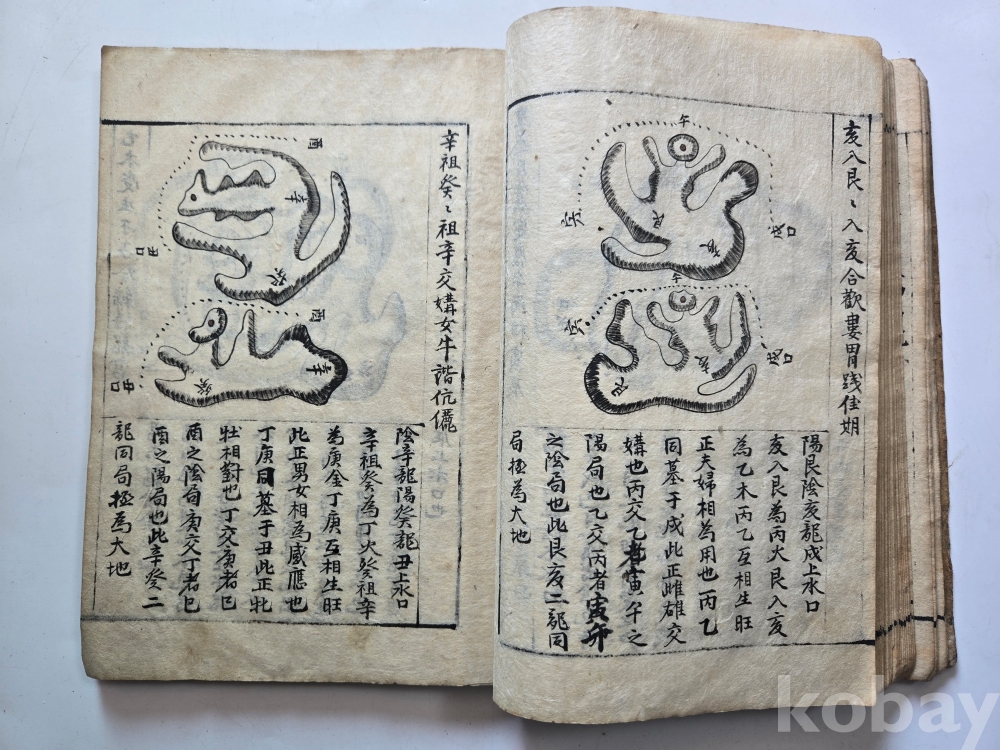 亥入艮〻入亥合歡婁胃踐佳期
午
亥
艮
戌口
午
亥
艮
戌口
陽艮陰亥龍戌上水口
亥入艮為丙火艮入亥
為乙木丙乙互相生旺
正夫婦相為用也丙乙
同墓于戌此正雌雄交
媾也丙交乙者寅午之
陽局也乙交丙者寅卯
之陰局也此艮亥二龍同
局極為大地
辛祖癸〻祖辛交媾女牛諧伉儷
酉
辛
癸
丑口
酉
辛
癸
陰辛龍陽癸龍丑上水口
辛祖癸為丁火癸祖辛
為庚金丁庚互相生旺
此正男女相為感應也
丁庚同墓于丑此正牝
牡相對也丁交庚者巳
酉之陰局庚交丁者巳
酉之陽局也此辛癸二
龍同局極為大地
kobay